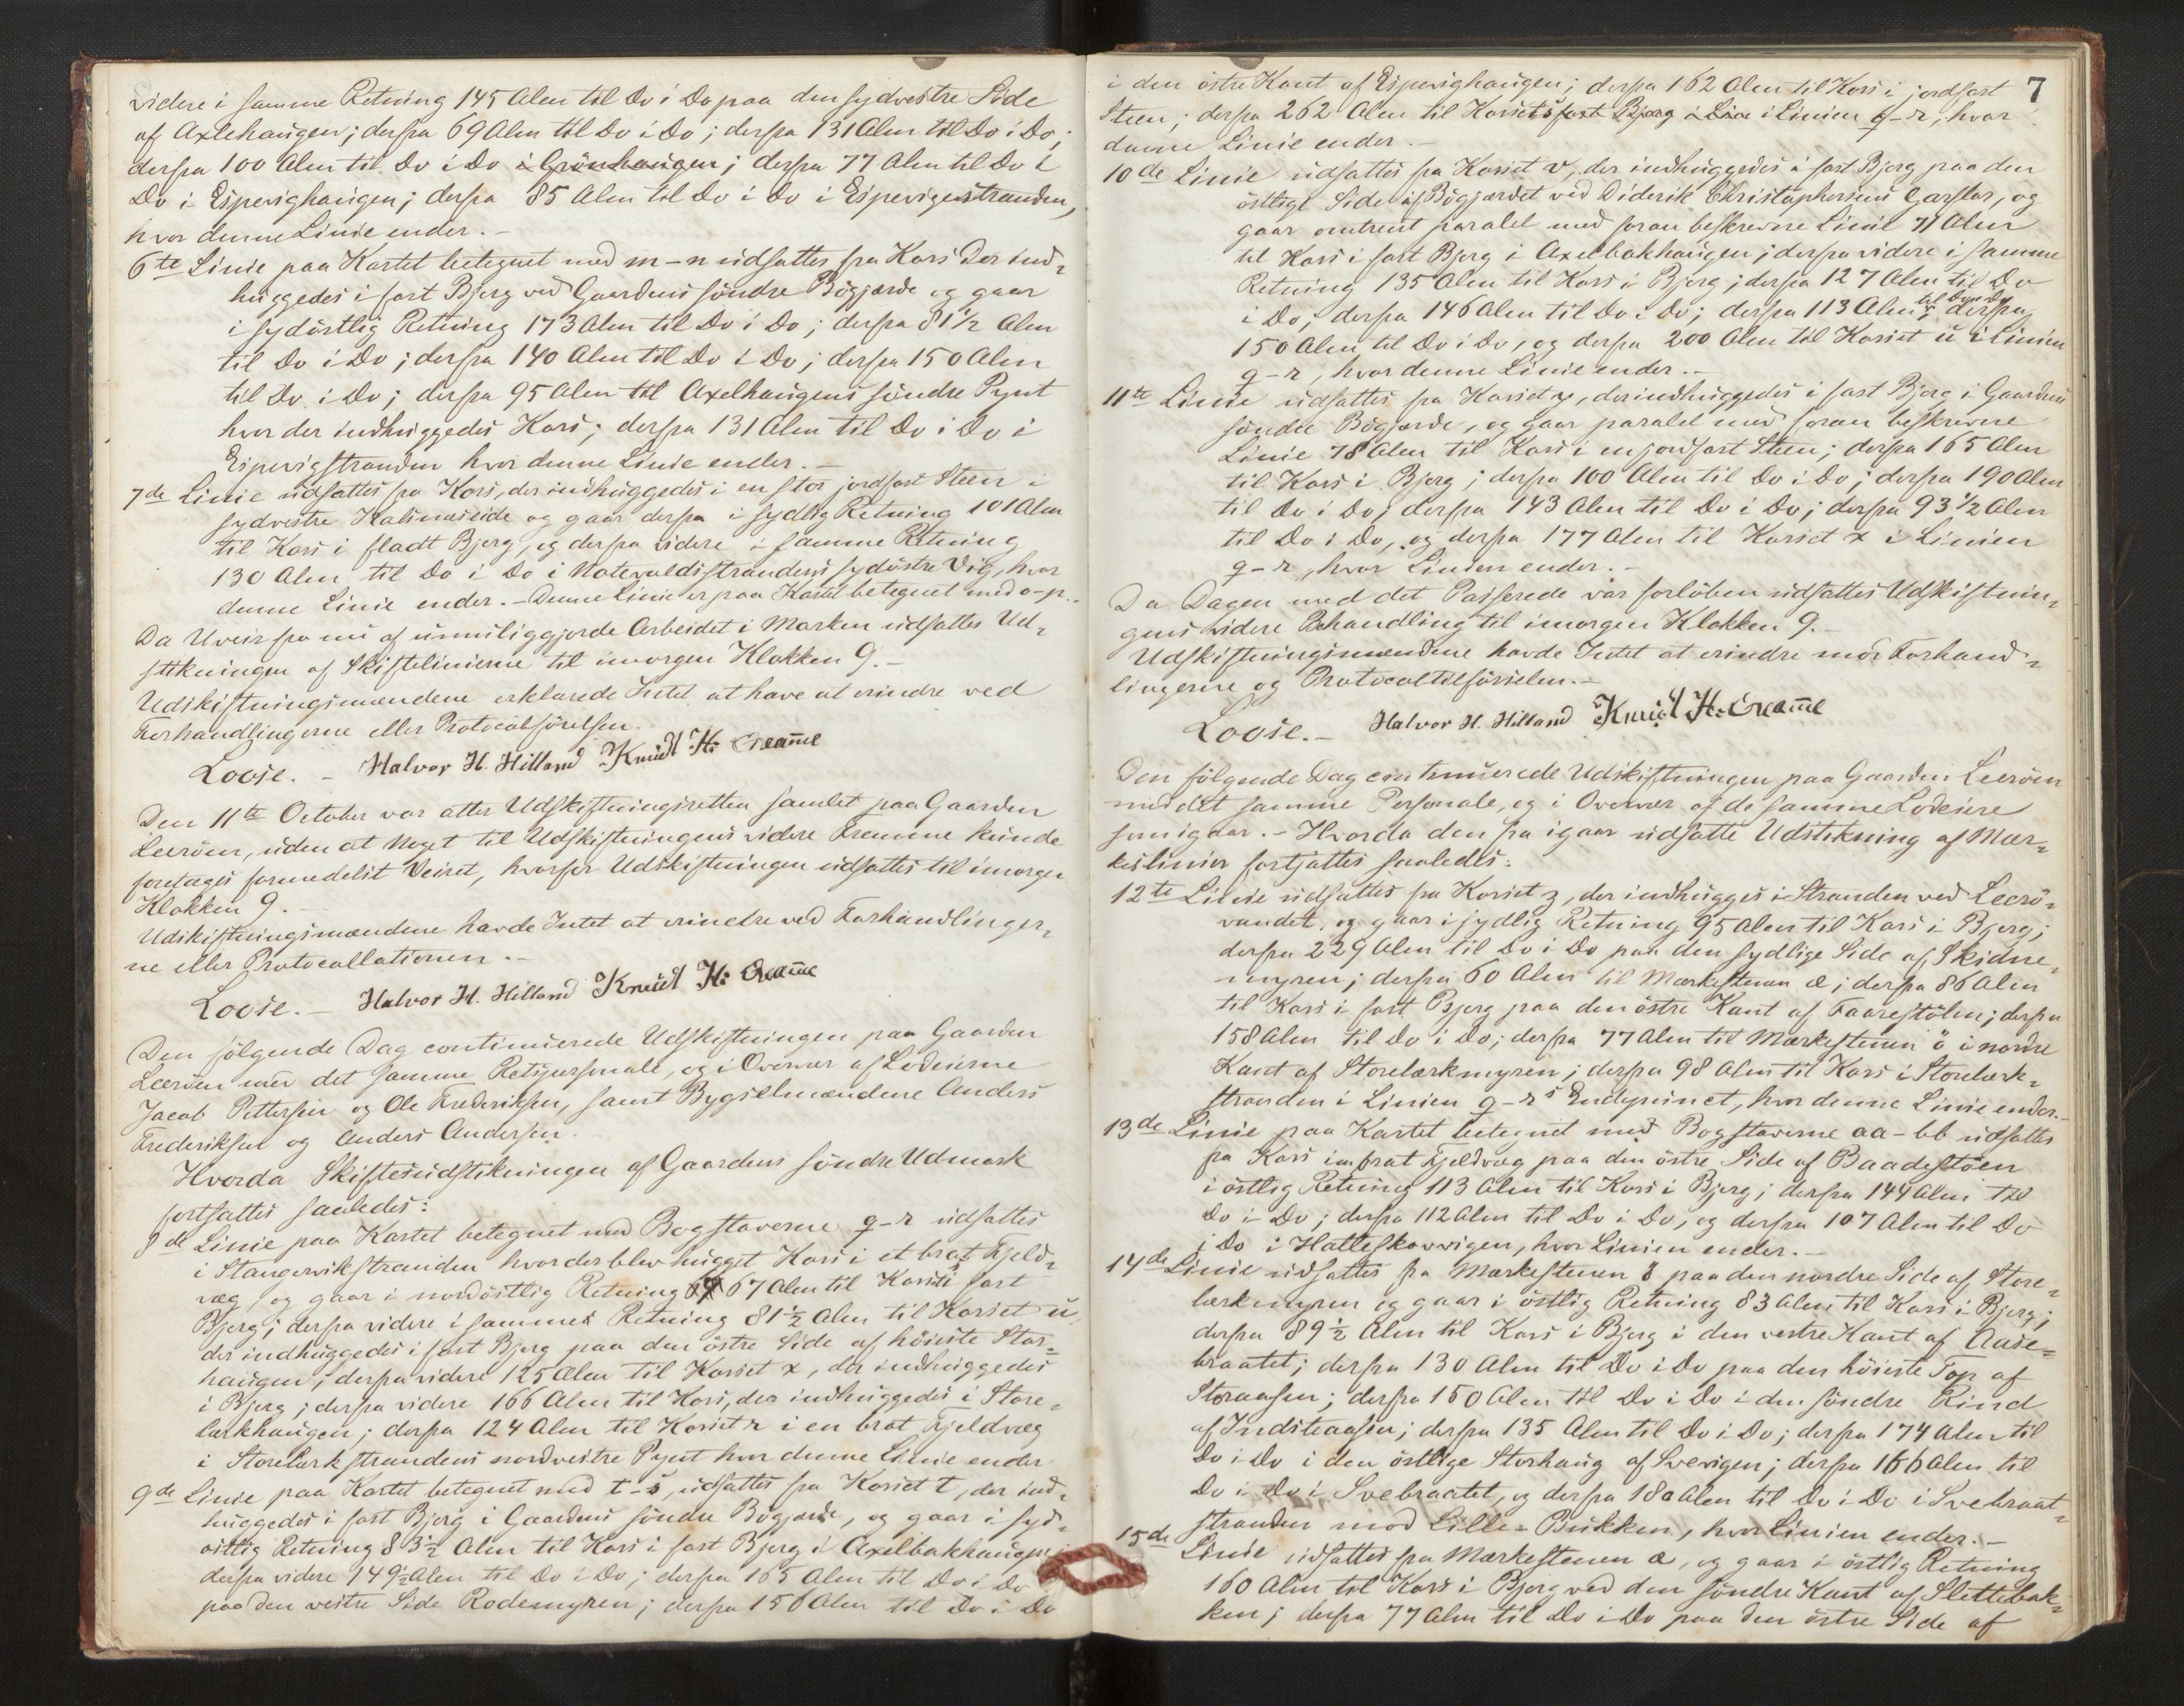 videre i samme Retning 145 Alen til Do i Do paa den sydvestre Side
af Axlehaugen; derfra 69 Alen til Do i Do; derfra 131 Alen til Do i Do;
derfra 100 Alen til Do i Do i Grönhaugen; derfra 77 Alen til Do i
Do i Espevighaugen; derfra 85 Alen til Do i Do i Espevigstranden,
hvor denne Linie ender.-
6te Linie paa Kartet betegnet med m-n udsattes fra Kors der ind-
huggedes i fast Bjerg ved Gaardens söndre Bögjærde og gaar
i sydöstlig Retning 173 Alen til Do i Do; derfra 81½ Alen
til Do i Do; derfra 140 Alen til Do i Do; derfra 150 Alen
til Do i Do; derfra 95 Alen til Axelhaugens söndre Pynt
hvor der indhuggedes Kors; derfra 131 Alen til Do i Do i
Espevigstranden hvor denne Linie ender.-
7de Linie udsattes fra Kors, der indhuggedes i en stor jordfast Steen i
sydvestre Kalsneseide og gaar derfra i sydlig Retning 101 Alen
til Kors i fladt Bjerg, og derfra videre i samme Retning
130 Alen til Do i Do i Notevaldsstrandens sydöstre Vig, hvor
denne Linie ender.- Denne Linie er paa Kartet betegnet med o-p.
Da Uveir fra nu af umuliggjorde Arbeidet i Marken udsattes Ud-
stikningen af Skiftelinierne til imorgen Klokken 9.-
Udskiftningsmændene erklærede Intet at have at erindre ved
Forhandlingerne eller Protocolförelsen.
Loose. - Halvor H. Hilland Knud H. Creamme
Den 11te October var atter Udskiftningsretten samlet paa Gaarden
Leeröen, uden at Noget til Udskiftningens videre Fremme kunde
foretages formedelst Veiret, hvorfor Udskiftningen udsattes til imorgen
Klokken 9.-
Udskiftningsmændene havde Intet at erindre ved Forhandlinger-
ne eller Protocollationen.-
Loose.- Halvor H. Hilland Knud H. Creamme
Den fölgende Dag continuerede Udskiftningen paa Gaarden
Leeröen med det samme Retspersonale, og i Overvær af Lodeierne
Jacob Pettersen og Ole Frederiksen, samt Bygselmændene Anders
Frederiksen og Anders Andersen.
Hvorda Skiftesudstikningen af Gaardens söndre Udmark
fortsattes saaledes:
8de Linie paa Kartet betegnet med Bogstaverne q-r udsattes
i Stangervikstranden hvor der blev hugget Kors i et brat Fjeld-
væg, og gaar i nordöstlig Retning 67 Alen til Korset i fast
Bjerg; derfra videre i samme Retning 81½ Alen til Korset u
der indhuggedes i fast Bjerg paa den östre Side af höieste Stor-
haugen; derfra videre 125 Alen til Korset x, der indhuggedes
i Bjerg; derfra videre 166 Alen til Kors, der indhuggedes i Store-
lærkhaugen; derfra 124 Alen til Korset r i en brat Fjeldvæg
i Storelærkstrandens nordvestre Pynt hvor denne Linie ender
9de Linie paa Kartet betegnet med t-s, udsattes fra Korset t, der ind-
huggedes i fast Bjerg i Gaardens söndre Bögjærde, og gaar i syd-
östlig Retning 83½ Alen til Kors i fast Bjerg i Axelbakhaugen;
derfra videre 149½ Alen til Do i Do; derfra 165 Alen til Do i Do
paa den vestre Side Rodemyren; derfra 156 Alen til Do i Do
7
i den östre Kant af Espevighaugen; derfra 162 Alen til Kors i jordfast
Steen; derfra 262 Alen til Korset s fast Bjerg i Linien q-r, hvor
denne Linie ender.-
10de Linie udsattes fra Korset v, der indhuggedes i fast Bjerg paa den
östlige Side af Bögjærdet ved Diderik Christophersens Garflor, og
gaar omtrent paralel med foran beskrevne Linie 71 Alen
til Kors i fast Bjerg i Axelbakhaugen; derfra videre i samme
Retning 135 Alen til Kors i Bjerg; derfra 127 Alen til Do
i Do; derfra 146 Alen til Do i Do; derfra 113 Alen til Do i Do; derfra
150 Alen til Do i Do, og derfra 200 Alen til Korset u i Linien
q-r, hvor denne Linie ender.-
11te Linie udsattes fra Korset y, der indhuggedes i fast Bjerg i Gaardens
söndre Bögjærde, og gaar paralel med foran beskrevne
Linie 78 Alen til Kors i en jordfast Steen; derfra 165 Alen
til Kors i Bjerg; derfra 100 Alen til Do i Do; derfra 190 Alen
til Do i Do; derfra 143 Alen til Do i Do; derfra 93½ Alen
til Do i Do, og derfra 177 Alen til Korset x i Linien
q-r, hvor Linien ender.-
Da Dagen med det Passerede var forlöben udsattes Udskiftnin-
gens videre Behandling til imorgen Klokken 9.-
Udskiftningsmændene havde Intet at erindre mod Forhand-
lingerne og Protocoltilförselen.-
Loose.- Halvor H. Hilland Knud H. Creamme
Den fölgende Dag continuerede Udskiftningen paa Gaarden Leeröen
med det samme Personale, og i Overvær af de samme Lodeiere
som igaar.- Hvorda den fra igaar udsatte Udstikning af Mær-
keslinier fortsattes saaledes:
12te Linie udsattes fra Korset z, der indhugges i Stranden ved Leerö-
vandet, og gaar i sydlig Retning 95 Alen til Kors i Bjerg;
derfra 229 Alen til Do i Do paa den sydlige Side af Skidne-
myren; derfra 60 Alen til Mærkestenen æ; derfra 86 Alen
til Kors i fast Bjerg paa den östre Kant af Faarestölen; derfra
158 Alen til Do i Do; derfra 77 Alen til Mærkestenen ö i nordre
Kant af Storelærkmyren; derfra 98 Alen til Kors i Storelærk-
stranden i Linien q-r's Endepunct, hvor denne Linie ender.-
13de Linie paa Kartet betegnet med Bogstaverne aa-bb udsattes
fra Kors i en brat Fjeldvæg paa den östre Side af Baadestöen
i östlig Retning 113 Alen til Kors i Bjerg; derfra 144 Alen til
Do i Do; derfra 112 Alen til Do i Do, og derfra 107 Alen til Do
i Do i Halleskarvigen, hvor Linien ender.-
14de Linie udsattes fra Mærkestenen ö paa den nordre Side af Store-
lærkmyren og gaar i östlig Retning 83 Alen til Kors i Bjerg;
derfra 89½ Alen til Kors i Bjerg i den vestre Kant af Aase-
braatet; derfra 130 Alen til Do i Do paa den höieste Top af
Storaasen; derfra 150 Alen til Do i Do i den söndre Rind
af Indsteaasen; derfra 135 Alen til Do i Do; derfra 174 Alen til
Do i Do i den östlige Storhaug af Svevigen; derfra 166 Alen til
Do i Do i Svebraatet, og derfra 180 Alen til Do i Do i Svebraat-
stranden mod Lille-Bukken, hvor Linien ender.-
15de Linie udsattes fra Mærkestenen æ, og gaar i östlig Retning
160 Alen til Kors i Bjerg ved den söndre Kant af Slettebak-
ken; derfra 77 Alen til Do i Do paa den östre Side af